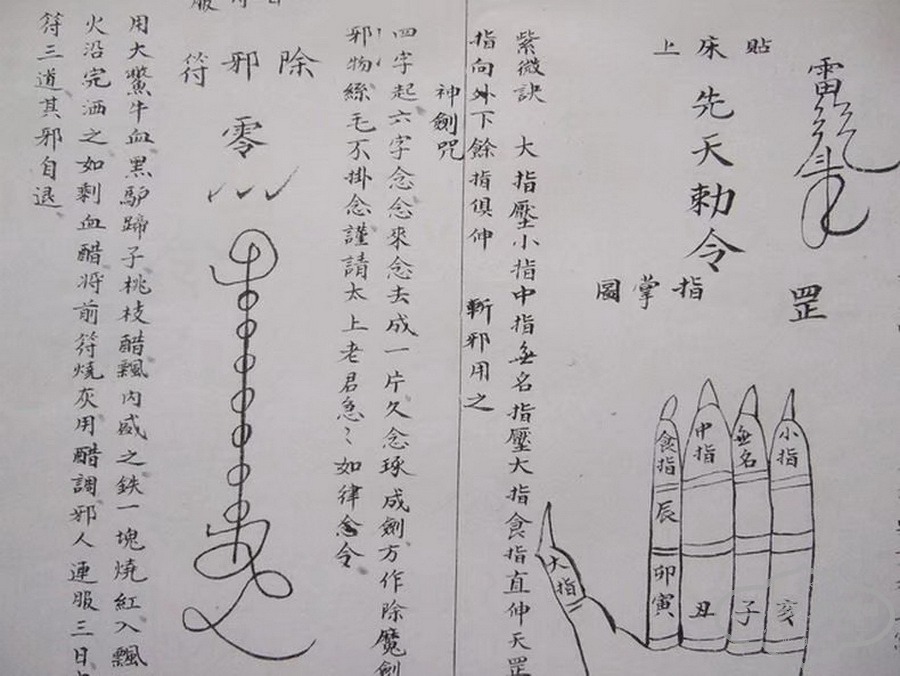 雷
罡
貼床上
先天勅令
指掌圖
小指
亥
無名
子
中指
丑
食指
辰
卯
寅
大指
紫微訣 大指壓小指中指無名指壓大指食指直伸天罡
指向外下餘指俱伸 斬邪用之
神劍咒
四字起六字念念來念去成一片久念琢成劍方作除魔劍
邪物絲毛不掛念謹請太上老君急〻如律令
除邪符
零
用大鱉牛血黑馿蹄子桃枝醋瓢內盛之鉄一塊燒紅入瓢
火沿完洒之如剩血醋將前符燒灰用醋調邪人連服三日
符三道其邪自退
服